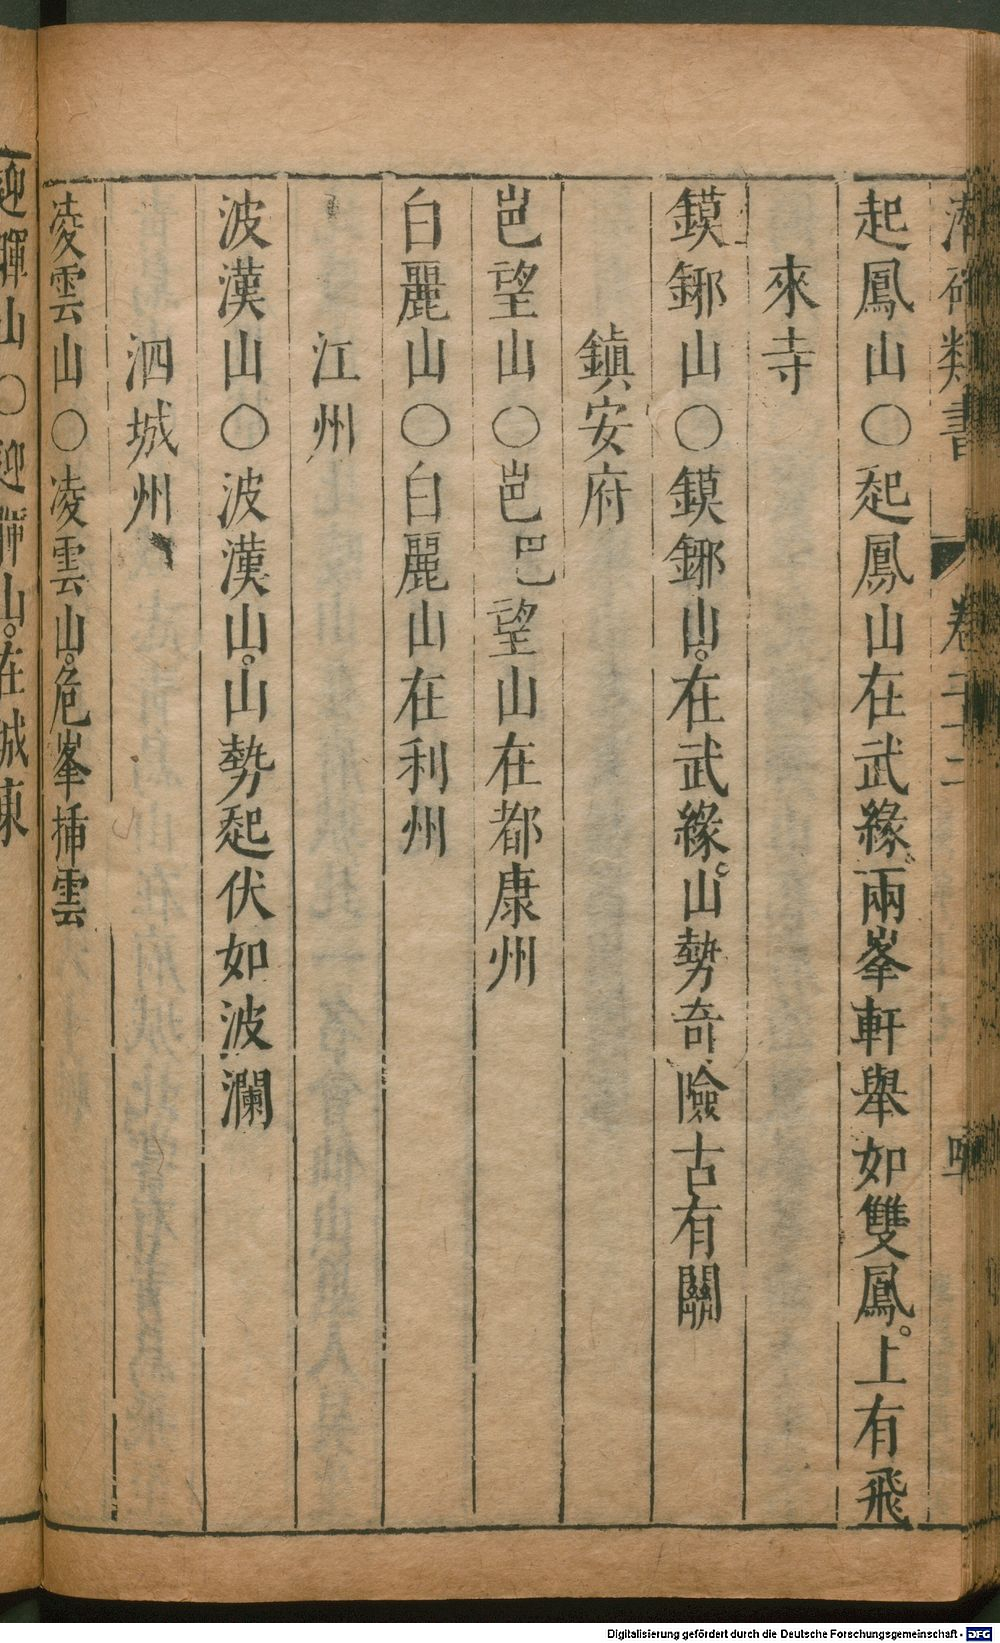 潛確類書 卷二十二
起鳳山○起鳳山在武緣兩峯軒舉如雙鳳。上有飛
來寺
鏌鎁山○鏌鎁山。在武緣。山勢奇險古有關
鎮安府
岜望山○岜巴望山在都康州
白麗山○白麗山在利州
江州
波漢山○波漢山。山勢起伏如波瀾
泗城州
凌雲山○凌雲山。危峯揷雲
迎暉山○迎暉山。在城東
Digitalisierung gefördert durch die Deutsche Forschungsgemeinschaft - DFG